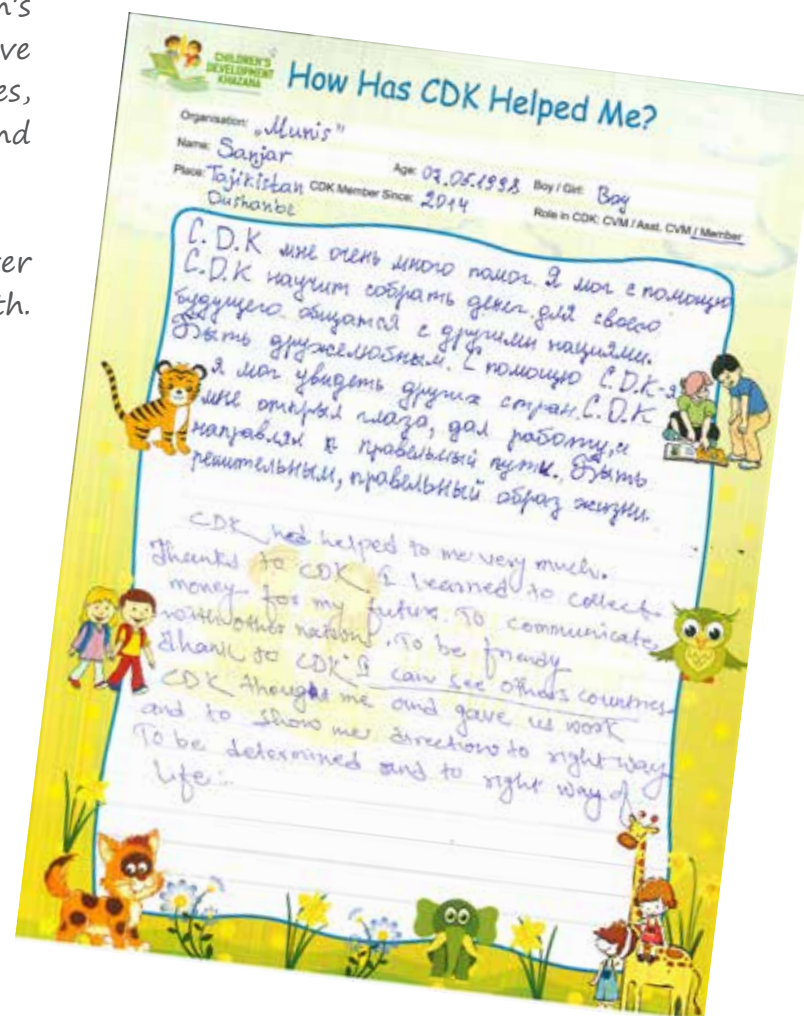 n's
ve
es,
nd
er
th.
CHILDREN'S
DEVELOPMENT
KHAZANA
How Has CDK Helped Me?
Organisation: „Munis"
Name: Sanjar Age: 07.05.1998 Boy / Girl: Boy
Place: Tajikistan CDK Member Since: 2014 Role in CDK: CVM / Asst. CVM / Member
Dushanbe
C.D.K мне очень много помог. Я мог с помощью
C.D.K научит собрать денег для своего
будущего. общатся с другими нациями.
Быть дружелюбным. С помощю C.D.K-я
я мог увидеть других стран. C.D.K
мне открыл глаза, дал работу, и
направлял к правельный путь. Быть
решительным, правельный образ жизни.
CDK had helped to me very much.
Thanks to CDK I learned to collect
money for my future. To communicate
with other nations. To be frendy
Thank to CDK I can see others countries
CDK thought me and gave us work
and to show me directions to right way
To be determined and to right way of
life.